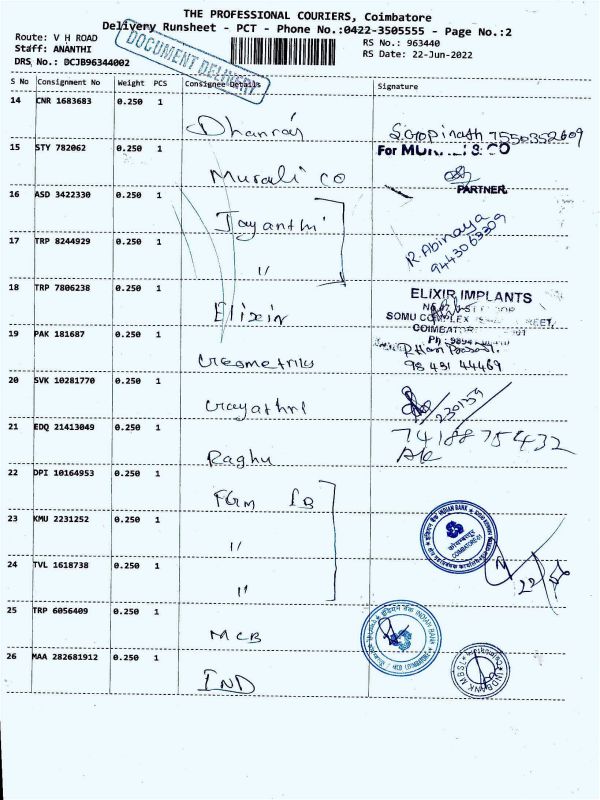 THE PROFESSIONAL COURIERS, Coimbatore
Delivery Runsheet - PCT - Phone No.:0422-3505555 - Page No.:2
Route: V H ROAD
Staff: ANANTHI
DRS No.: DCJB96344002
DOCUMENT DELIVERY
RS No.: 963440
RS Date: 22-Jun-2022
S No Consignment No Weight PCS Consignee Details Signature
14 CNR 1683683 0.250 1
Dhanraj S.Gopinath 7550352609
15 STY 782062 0.250 1 For MURALI & CO
Murali co PARTNER.
16 ASD 3422330 0.250 1
Jayanthi R.Abinaya
9443063309
17 TRP 8244929 0.250 1
"
18 TRP 7806238 0.250 1 ELIXIR IMPLANTS
Elixir SOMU COMPLEX STREET,
COIMBATORE
19 PAK 181687 0.250 1 Ph:
Geometriks 98431 44469
20 SVK 10281770 0.250 1
Gayathri 230159
21 EDQ 21413049 0.250 1 7418875432
Raghu
22 DPI 10164953 0.250 1
FGM IB
23 KMU 2231252 0.250 1 INDIAN BANK
" COIMBATORE-01
24 TVL 1618738 0.250 1
" 22/
25 TRP 6056409 0.250 1 INDIAN BANK
MCB
26 MAA 282681912 0.250 1
IND INDBANK MBSL